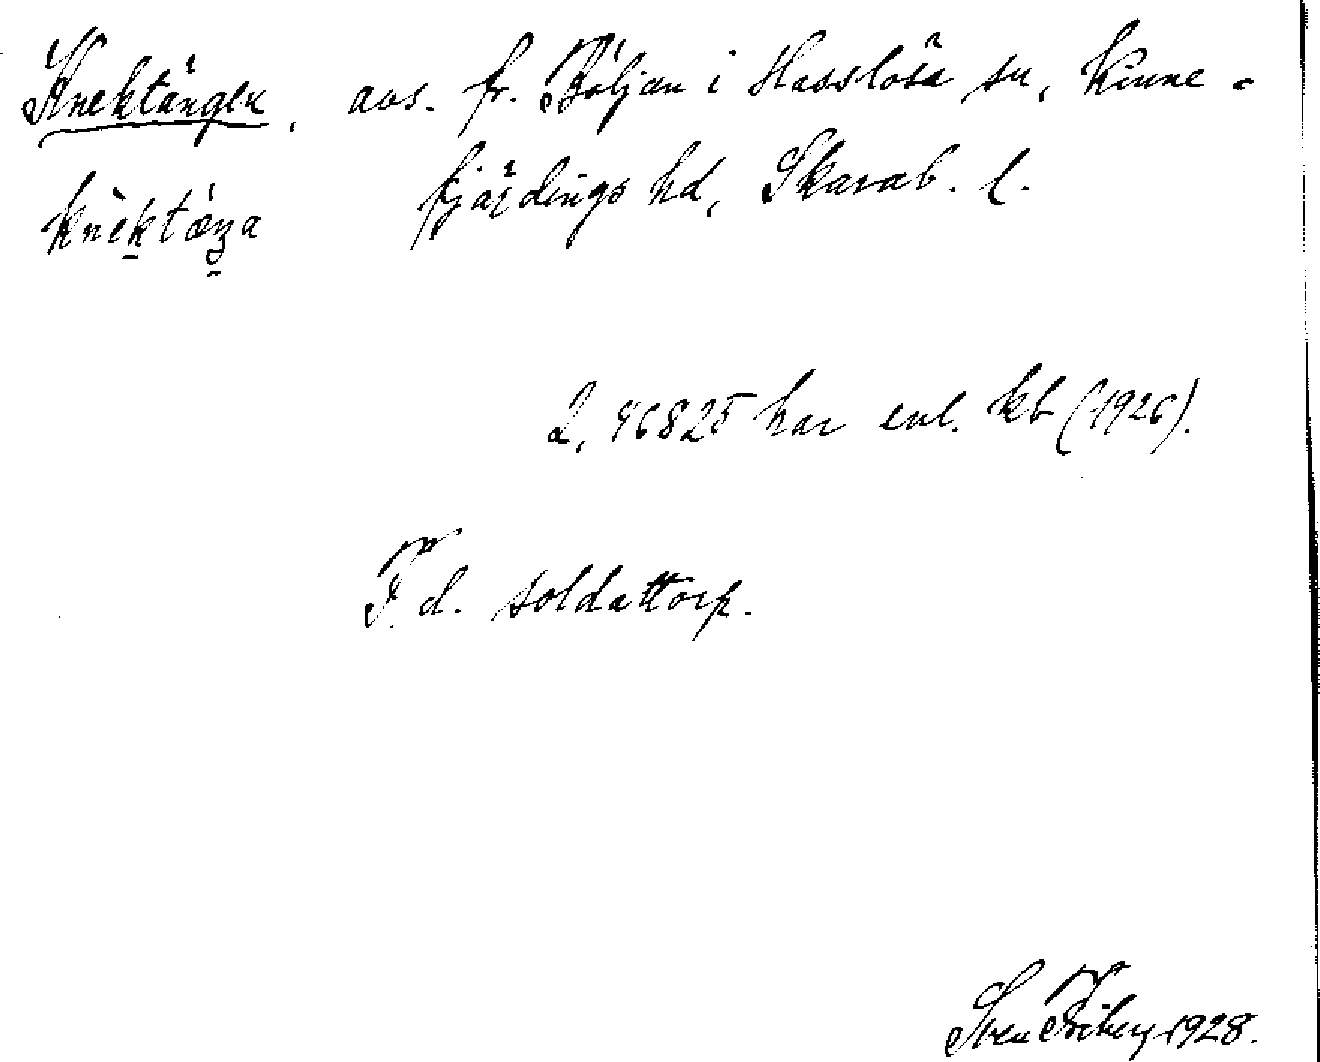 Knektängen, avs. fr. Böljan i Hasslösa sn, Kinne-
knèktǽŋa fjärdings hd, Skarab. l.
2,46825 har enl. kb (1926).
F. d. soldattorp.
Sven Friberg 1928.